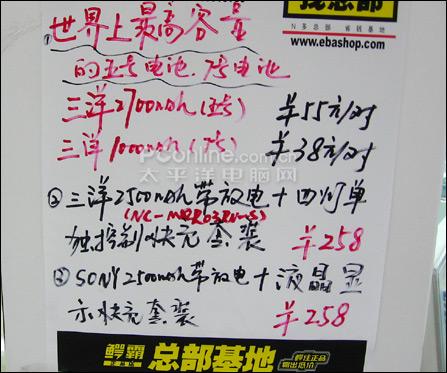 总部
N多总部 省钱基地
www.ebashop.com
①世界上最高容量
的五号电池.7号电池
三洋2700mah(5号) ￥55元/对
三洋1000mah(7号) ￥38元/对
PConline.com.cn
太平洋电脑网
②三洋2500mah带放电+四灯单
(NC-MQR03RN-S)
独控制快充套装 ￥258
③SONY2500mah带放电+液晶显
示快充套装 ￥258
鳄霸 总部基地